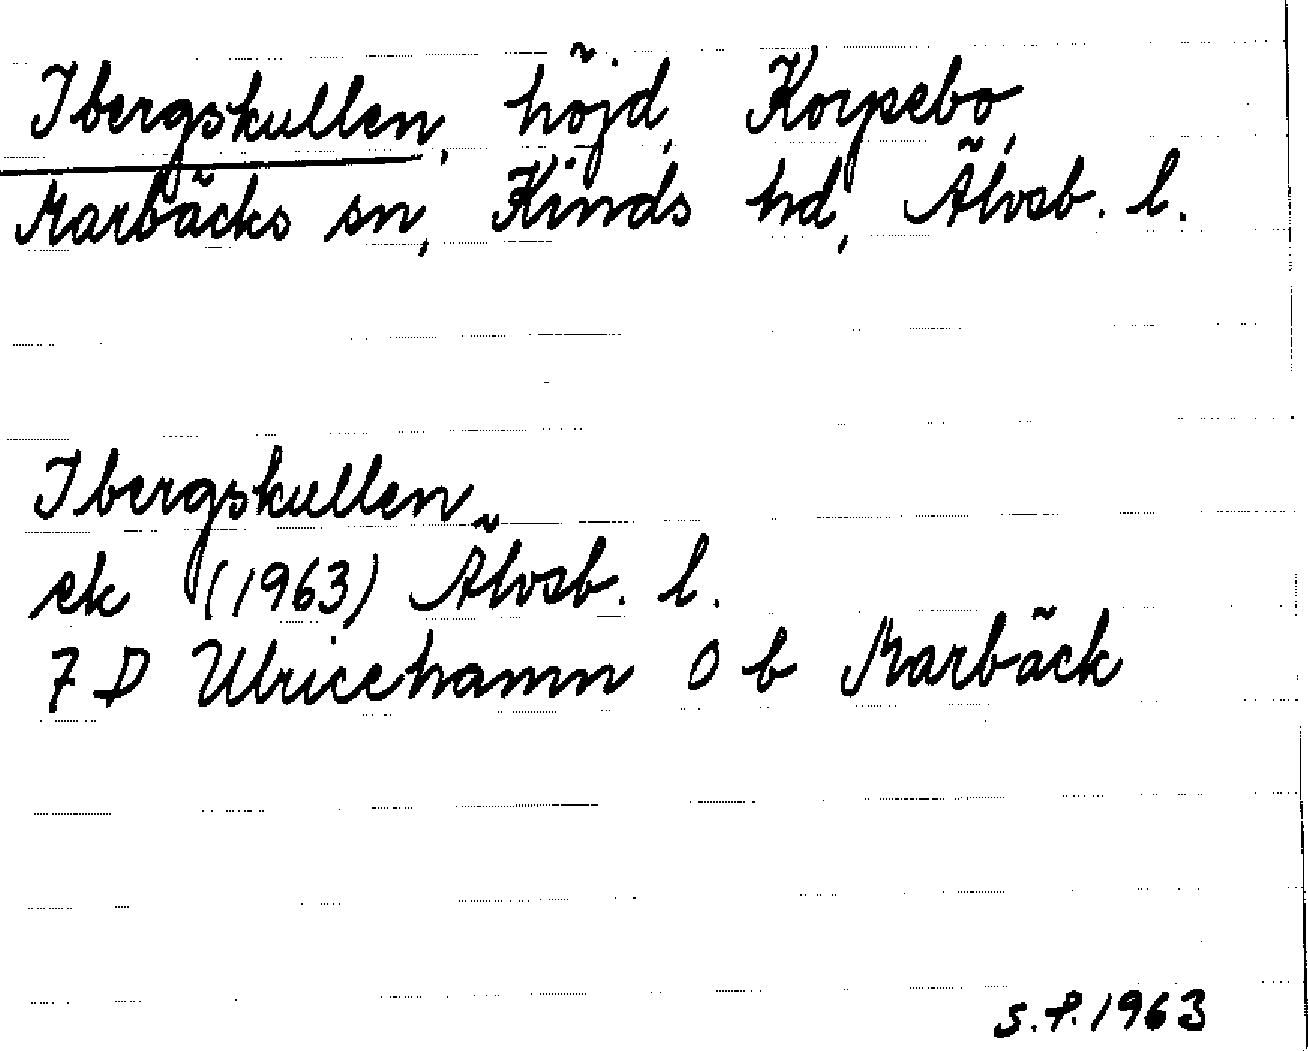 Ibergskullen, höjd, Korpebo,
Marbäcks sn, Kinds hd, Älvsb. l.
Ibergskullen
ek (1963) Älvsb. l.
7 D Ulricehamn 0 b Marbäck
S.P. 1963